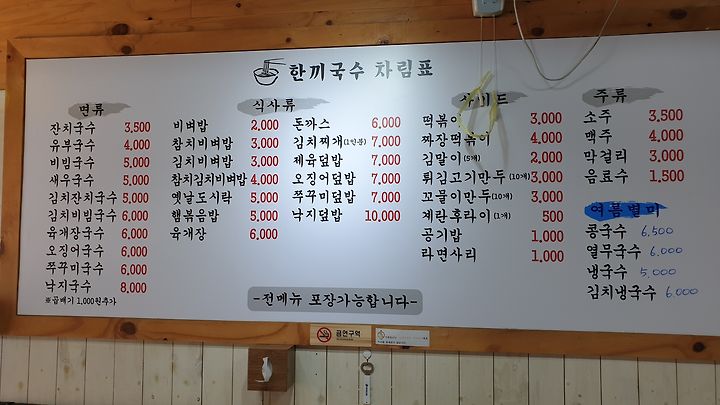 한끼국수 차림표
면류
잔치국수 3,500
유부국수 4,000
비빔국수 5,000
새우국수 5,000
김치잔치국수 5,000
김치비빔국수 6,000
육개장국수 6,000
오징어국수 6,000
쭈꾸미국수 6,000
낙지국수 8,000
※곱빼기 1,000원추가
식사류
비벼밥 2,000
참치비벼밥 3,000
김치비벼밥 3,000
참치김치비벼밥 4,000
옛날도시락 5,000
햄볶음밥 5,000
육개장 6,000
돈까스 6,000
김치찌개(1인분) 7,000
제육덮밥 7,000
오징어덮밥 7,000
쭈꾸미덮밥 7,000
낙지덮밥 10,000
사이드
떡볶이 3,000
짜장떡볶이 4,000
김말이(5개) 2,000
튀김고기만두(10개) 3,000
꼬물이만두(10개) 3,000
계란후라이(1개) 500
공기밥 1,000
라면사리 1,000
주류
소주 3,500
맥주 4,000
막걸리 3,000
음료수 1,500
여름별미
콩국수 6,500
열무국수 6,000
냉국수 5,000
김치냉국수 6,000
-전메뉴 포장가능합니다-
금연구역